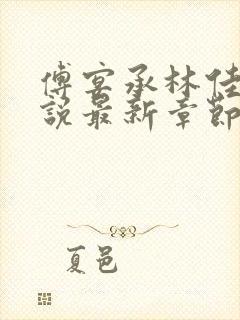 傅宴承林佳
說最新章節
夏邑